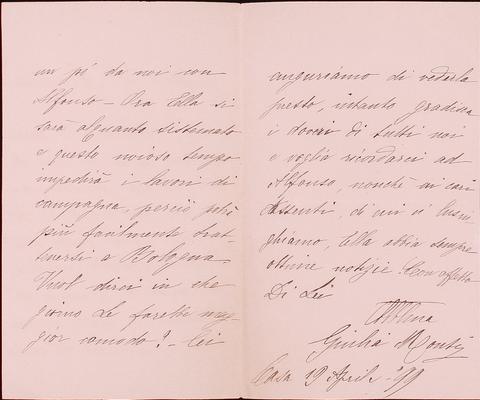 un pò da noi con
Alfonso – Ora Ella si
sarà alquanto sistemato
e questo noioso tempo
impedirà i lavori di
campagna, perciò potrà
più facilmente trat-
tenersi a Bologna.
Vuol dirci in che
giorno Le farebbe mag-
gior comodo? – Ci
auguriamo di vederla
presto, intanto gradisca
i doveri di tutti noi
e voglia ricordarci ad
Alfonso, nonchè ai cari
Assenti, di cui ci lusin-
ghiamo, Ella abbia sempre
ottime notizie. Con affetto
Di Lei
Giulia Monti
Casa 19 Aprile '99